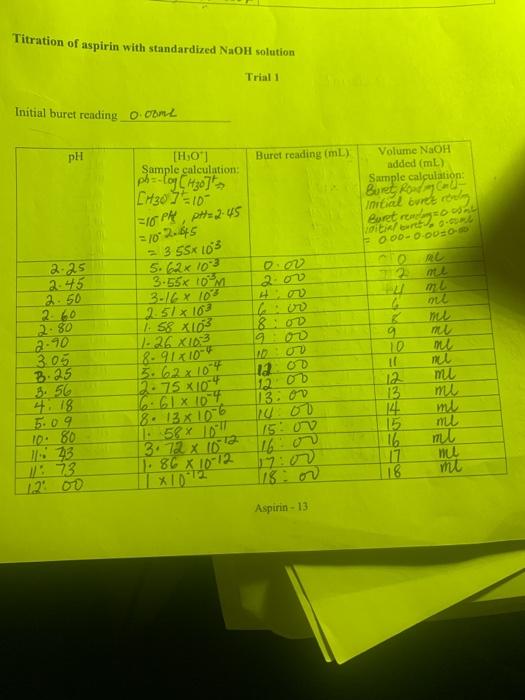 Titration of aspirin with standardized NaOH solution
Trial 1
Initial buret reading 0.00mL
pH [H3O+] Buret reading (mL) Volume NaOH added (mL)
Sample calculation: Sample calculation:
pH = -log[H3O]+ ⇒ Buret Reading (mL)-
[H3O]+ = 10 initial buret reading
= 10 pH, pH = 2.45 Buret reading = 0.00mL
= 10 2.45 initial buret = 0.00mL
= 3.55 x 10³ = 0.00-0.00=0.00
2.25 5.62 x 10-3 0.00 0 mL
2.45 3.55x 10-3 M 2.00 2 mL
2.50 3.16 x 10-3 4:00 4 mL
2.60 2.51 x 10-3 6:00 6 mL
2.80 1.58 x10-3 8:00 8 mL
2.90 1.26 x10-3 9:00 9 mL
3.05 8.91x10-4 10:00 10 mL
3.25 5.62x10-4 11.00 11 mL
3.56 2.75 x10-4 12:00 12 mL
4.18 6.61x10-4 13:00 13 mL
5.09 8.13x10-6 14:00 14 mL
10.80 1.58x 10-11 15:00 15 mL
11:43 3.72 x 10-12 16:00 16 mL
11:73 1.86 x 10-12 17:00 17 mL
12.00 1 x10-12 18:00 18 mL
Aspirin - 13